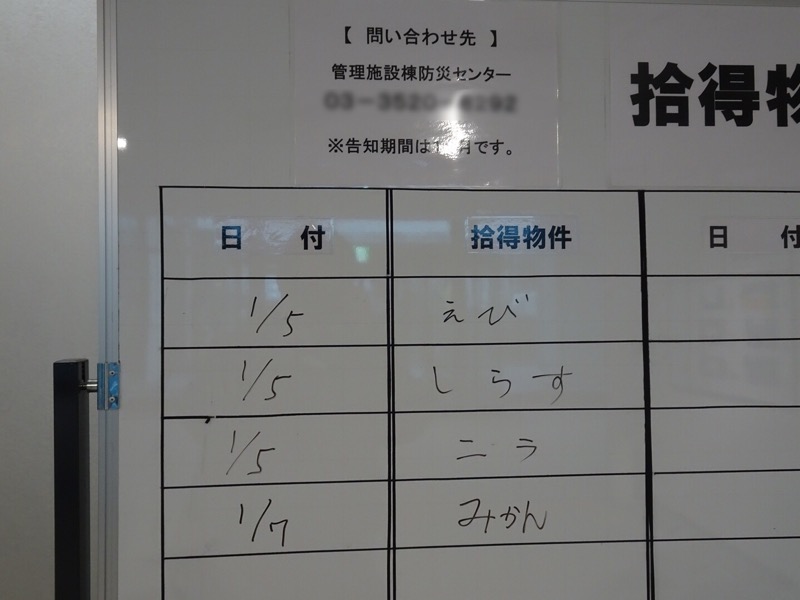 【 問い合わせ先 】
管理施設棟防災センター
※告知期間は1 月です。
拾得物
日 付 拾得物件 日 付
1/5 えび
1/5 しらす
1/5 ニラ
1/7 みかん